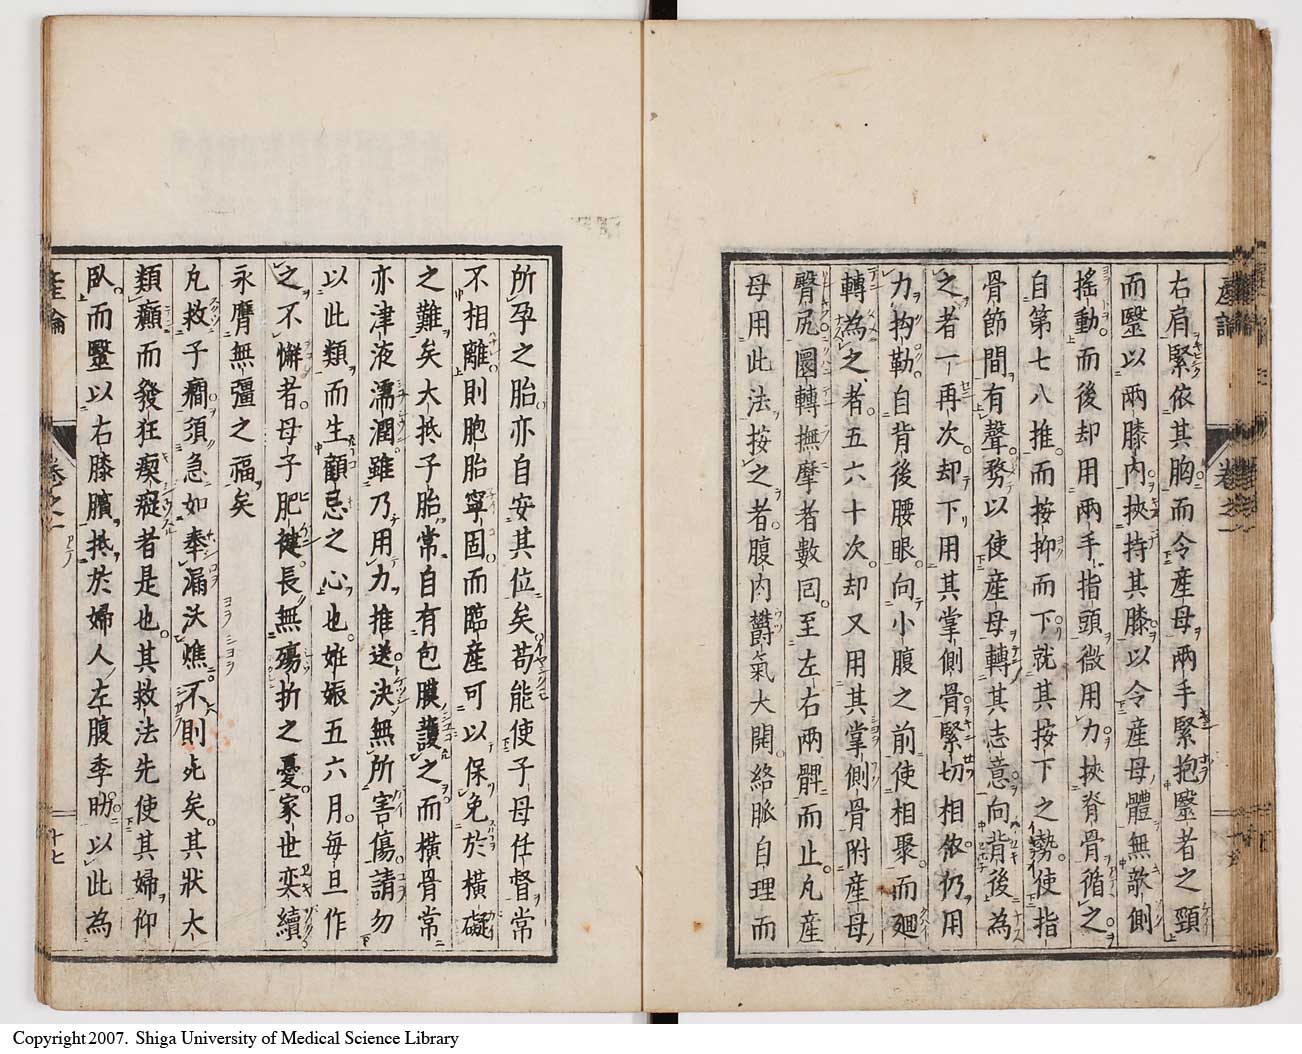 右肩緊依其胸而令產母兩手緊抱毉者之頸
而毉以兩膝內挾持其膝以令產母體無欹側
搖動而後却用兩手指頭微用力挾脊骨循之
自第七八推而按抑而下就其按下之勢使指
骨節間有聲務以使產母轉其志意向背後為
之者一再次却下用其掌側骨緊切相依仍用
力拘勒自背後腰眼向小腹之前使相聚而廻
轉為之者五六十次却又用其掌側骨附產母
臀尻圜轉撫摩者數回至左右兩髀而止凡產
母用此法按之者腹內欝氣大開絡脈自理而
所孕之胎亦自安其位矣苟能使子母任督常
不相離則胞胎寧固而臨產可以保免於橫礙
之難矣大抵子胎常自有包膜護之而橫骨常
亦津液濡潤雖乃用力推送決無所害傷請勿
以此類而生顧忌之心也妊娠五六月每旦作
之不懈者母子肥健長無殤折之憂家世奕續
永膺無彊之福矣
凡救子癇須急如奉漏沃燋不則死矣其狀大
類癲而發狂瘈瘲者是也其救法先使其婦仰
臥而毉以右膝臏抵於婦人左腹季肋以此為
產論
卷之一
十七
Copyright 2007. Shiga University of Medical Science Library